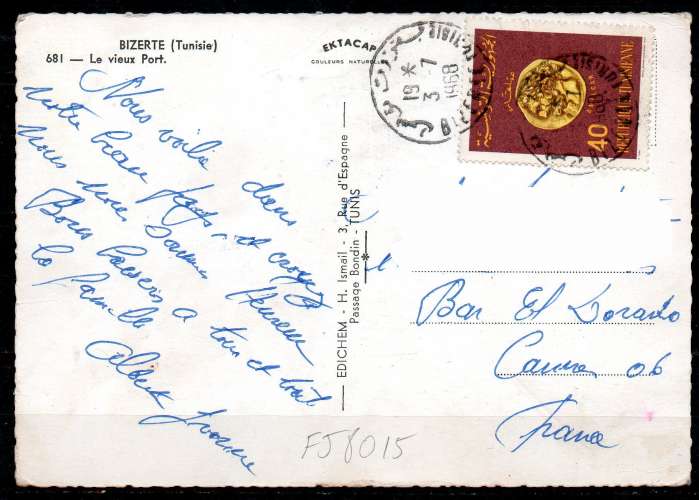 BIZERTE (Tunisie)
681 — Le vieux Port.
EKTACAP
COULEURS NATURELLES
Nous voilà dans
notre beau pays, et croyez
nous nous sommes heureux
Bons baisers a tous et toute
la famille
Albert Yvonne
EDICHEM - H. Ismail - 3, Rue d'Espagne
Passage Bondin - TUNIS
19 * 3 -7 1968
BIZERTE
40
REPUBLIQUE TUNISIENNE
الجمهورية التونسية
Bar El Dorado
Cannes 06
France
FJ8015